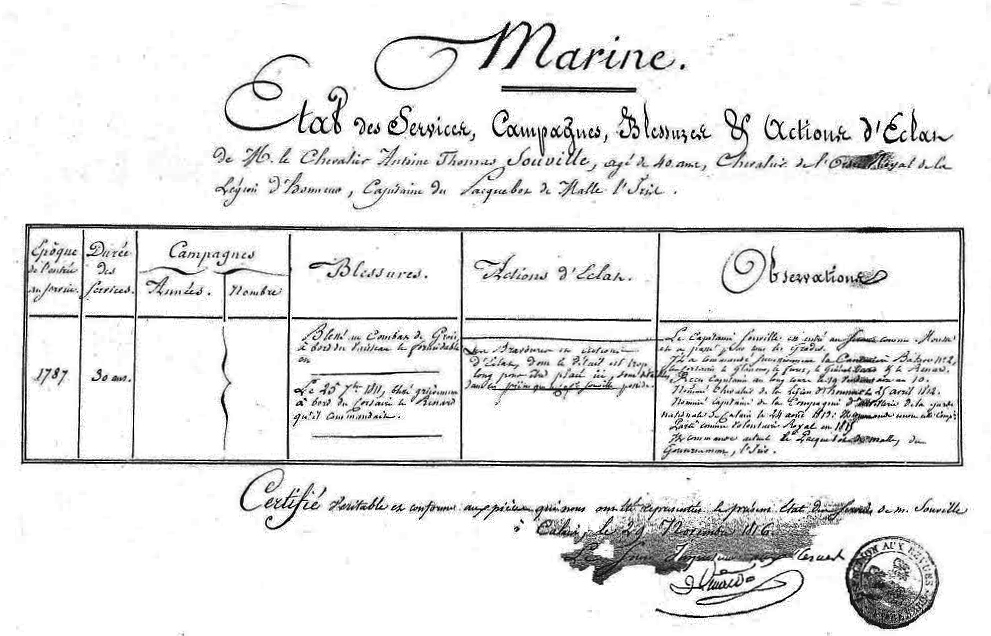 Marine.
Etat des Services, Campagnes, Blessures & Actions d'Eclat
de M. le Chevalier Antoine Thomas Souville, agé de 40 ans, Chevalier de l'Ordre Royal de la
Légion d'honneur, Capitaine du Pacquebot de Malle l'Iris.
Epôque de l'entrée au Service.
Durée des Services.
Campagnes
Années.
Nombre
Blessures.
Actions d'Eclat.
Observations
1787
30 ans.
Blessé au Combat de Groix
à bord du Vaisseau le formidable
en
Le 25 7bre 1811, blessé grièvement
à bord du Corsaire le Renard
qu'il commandait.
d'Eclat, dont le détail est trop
long pour être placé ici, sont
dans les pièces
Le Capitaine Souville est entré au Service comme Mousse
et a passé par tous les Grades.
Il a commandé la Canonnière Bateau No. 2,
les Corsaires le Glaneur, le et le Renard.
Reçu Capitaine au long cours le an 10.
Nommé Chevalier de la Légion d'honneur le 25 avril 1812.
Nommé Capitaine de la Compagnie d'artillerie de la garde
nationale de Calais le 24 août 1813:
Parti comme Volontaire Royal en 1815
Il commande actuel. le Pacquebot de malle du
Gouvernement, l'Iris.
Certifié Véritable et conforme aux pièces qui nous ont été représentées le présent état des Services de m. Souville
à Calais, le 29 Novembre 1816.
Le Sous
AUX REVUES